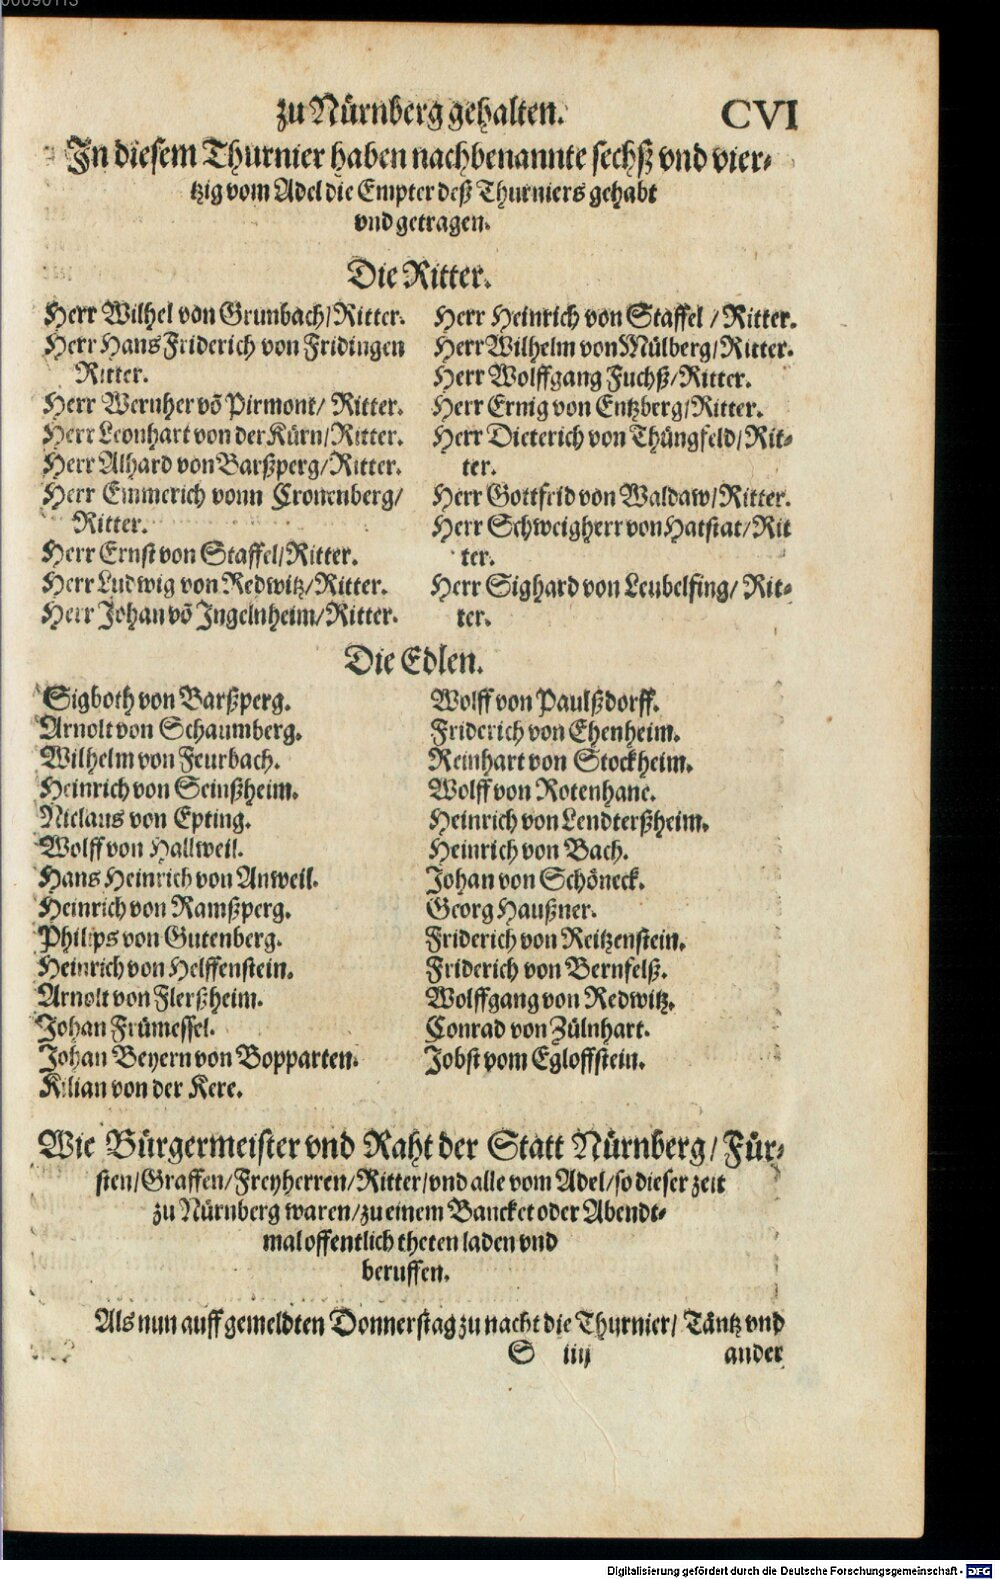 zu Nürnberg gehalten. CVI
In diesem Thurnier haben nachbenannte sechß vnd vier-
tzig vom Adel die Empter deß Thurniers gehabt
vnd getragen.
Die Ritter.
Herr Wilhel von Grunbach/Ritter.
Herr Hans Friderich von Fridingen
Ritter.
Herr Wernher võ Pirmont/ Ritter.
Herr Leonhart von der Kürn/Ritter.
Herr Alhard von Barßperg/Ritter.
Herr Emmerich vonn Cronenberg/
Ritter.
Herr Ernst von Staffel/Ritter.
Herr Ludwig von Redwitz/Ritter.
Herr Johan võ Ingelnheim/Ritter.
Herr Heinrich von Staffel / Ritter.
Herr Wilhelm von Mülberg/Ritter.
Herr Wolffgang Fuchß/Ritter.
Herr Ernig von Entzberg/Ritter.
Herr Dieterich von Thüngfeld/Rit-
ter.
Herr Gottfrid von Waldaw/Ritter.
Herr Schweigherr von Hatstat/Rit
ter.
Herr Sighard von Leubelfing/ Rit-
ter.
Die Edlen.
Sigboth von Barßperg.
Arnolt von Schaumberg.
Wilhelm von Feurbach.
Heinrich von Seinßheim.
Niclaus von Epting.
Wolff von Hallweil.
Hans Heinrich von Anweil.
Heinrich von Ramßperg.
Philips von Gutenberg.
Heinrich von Helffenstein.
Arnolt von Flerßheim.
Johan Frümessel.
Johan Beyern von Bopparten.
Kilian von der Kere.
Wolff von Paulßdorff.
Friderich von Ehenheim.
Reinhart von Stockheim.
Wolff von Rotenhane.
Heinrich von Lendterßheim.
Heinrich von Bach.
Johan von Schöneck.
Georg Haußner.
Friderich von Reitzenstein.
Friderich von Bernfelß.
Wolffgang von Redwitz.
Conrad von Zülnhart.
Jobst vom Egloffstein.
Wie Bürgermeister vnd Raht der Statt Nürnberg/ Für-
sten/Graffen/Freyherren/Ritter/vnd alle vom Adel/so dieser zeit
zu Nürnberg waren/zu einem Bancket oder Abendt-
mal offentlich theten laden vnd
beruffen.
Als nun auff gemeldten Donnerstag zu nacht die Thurnier/ Täntz vnd
S iiij ander
Digitalisierung gefördert durch die Deutsche Forschungsgemeinschaft - DFG